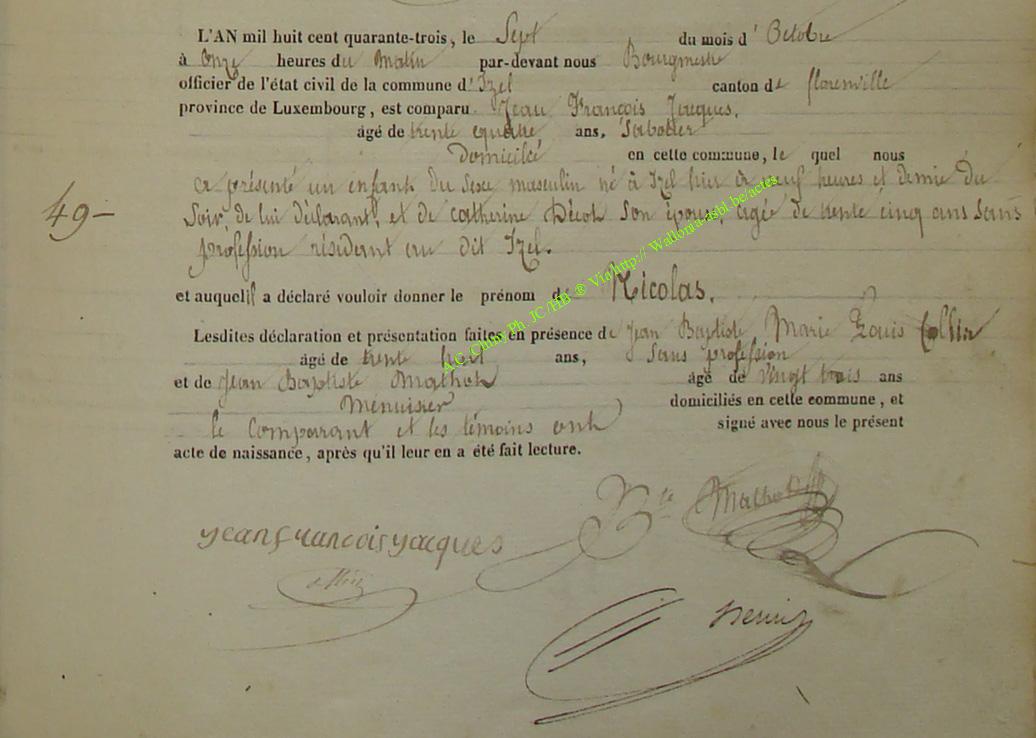 L'AN mil huit cent quarante-trois, le Sept du mois d' Octobre
à Onze heures du Matin par-devant nous Bourgmestre
officier de l'état civil de la commune d'Izel canton de florenville
province de Luxembourg, est comparu Jean François Jacques,
âgé de trente quatre ans, Sabotier
Domicilié en cette commune, le quel nous
a présenté un enfant du Sexe masculin né à Izel hier à neuf heures et demie du
49- Soir de lui déclarant, et de Catherine Son épouse, agée de trente cinq ans Sans
profession résident au dit Izel.
et auquel il a déclaré vouloir donner le prénom de Nicolas.
Lesdites déclaration et présentation faites en présence de Jean Baptiste Marie Louis Collin
âgé de trente ans, Sans profession
et de Jean Baptiste Mathot âgé de vingt trois ans
Menuisier domiciliés en cette commune, et
le Comparant et les témoins ont signé avec nous le présent
acte de naissance, après qu'il leur en a été fait lecture.
A.G. Chiny Ph. JC/HB ® Via http://Wallonia.asbl.be/actes
Bte Mathot
jean francois jacques